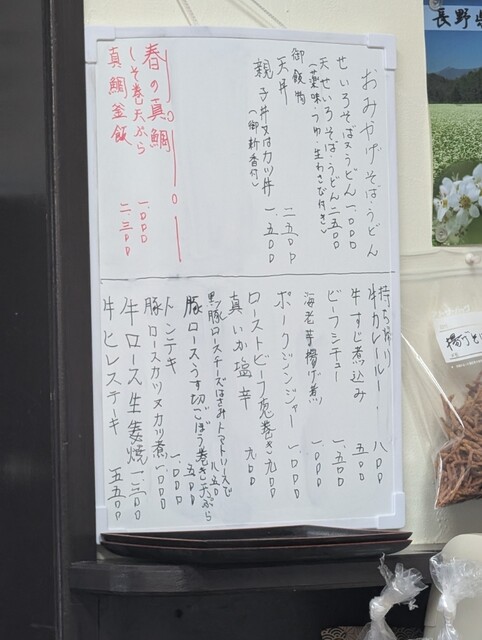 おみやげそば・うどん
せいろそば又うどん 一、〇〇〇
天せいろそば・うどん 二、五〇〇
(薬味・つゆ・生わさび付き)
御飯物
天丼 二、五〇〇
親子丼又はカツ丼 一、五〇〇
(御新香付)
春の真鯛
しそ巻天ぷら 一、〇〇〇
真鯛釜飯 二、三〇〇
持ち帰り
牛カレールー 八〇〇
牛すじ煮込み 五〇〇
ビーフシチュー 一、五〇〇
海老芋揚げ煮 一、〇〇〇
ポークジンジャー 一、〇〇〇
ローストビーフ葱巻き 九〇〇
真いか塩辛 九〇〇
黒豚ロースチーズはさみトマトソースで 一、八五〇
豚ロースうす切ごぼう巻き天ぷら 五〇〇
トンテキ 一、〇〇〇
豚ロースカツ又カツ煮 一、〇〇〇
牛ロース生姜焼 一、三〇〇
牛ヒレステーキ 五、五〇〇
長野県